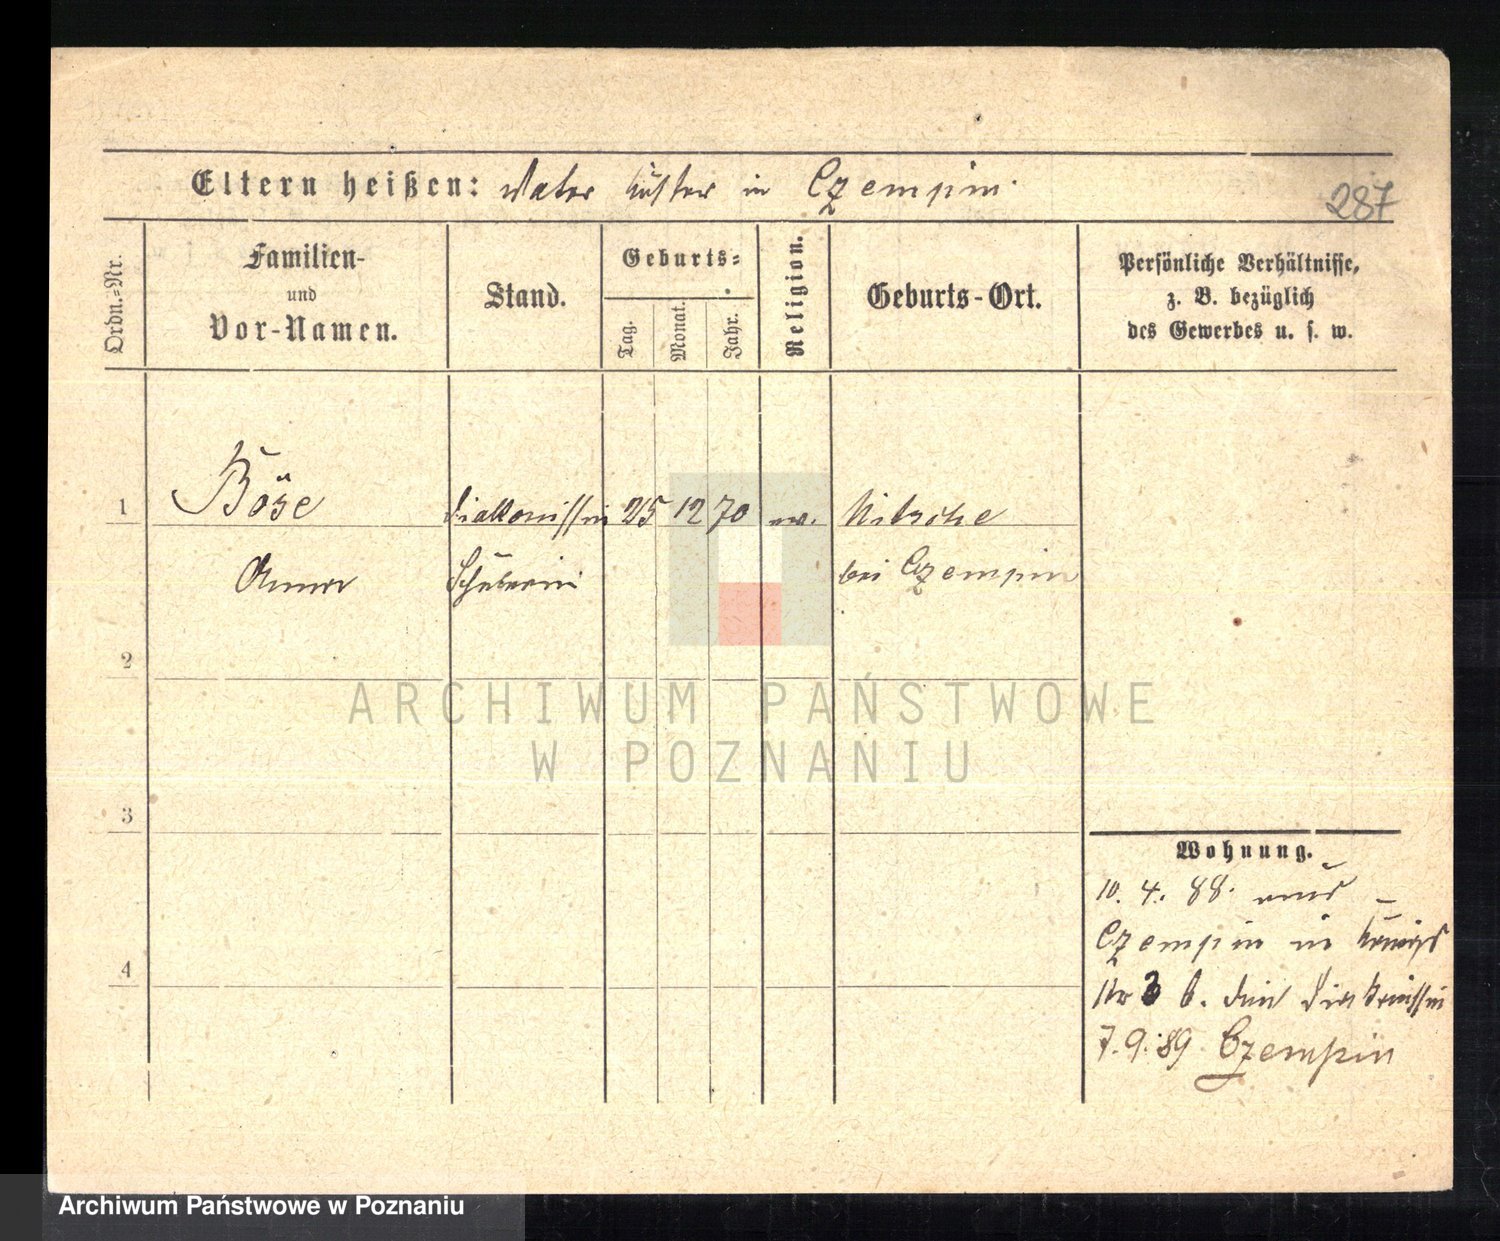 Eltern heißen: Vater Küster in Czempin.
287
Ordn.=Nr.
Familien-
und
Vor-Namen.
Stand.
Geburts=
Tag.
Monat.
Jahr.
Religion.
Geburts-Ort.
Persönliche Verhältnisse,
z. B. bezüglich
des Gewerbes u. s. w.
1
Böse
Diakonissin
25 12 70
ev.
Nitsche
Anna
Schülerin
bei Czempin
2
ARCHIWUM PAŃSTWOWE
W POZNANIU
3
Wohnung.
10. 4. 88. aus
Czempin in Königs
str 3 b. den Diakonissin
4
7. 9. 89 Czempin
Archiwum Państwowe w Poznaniu